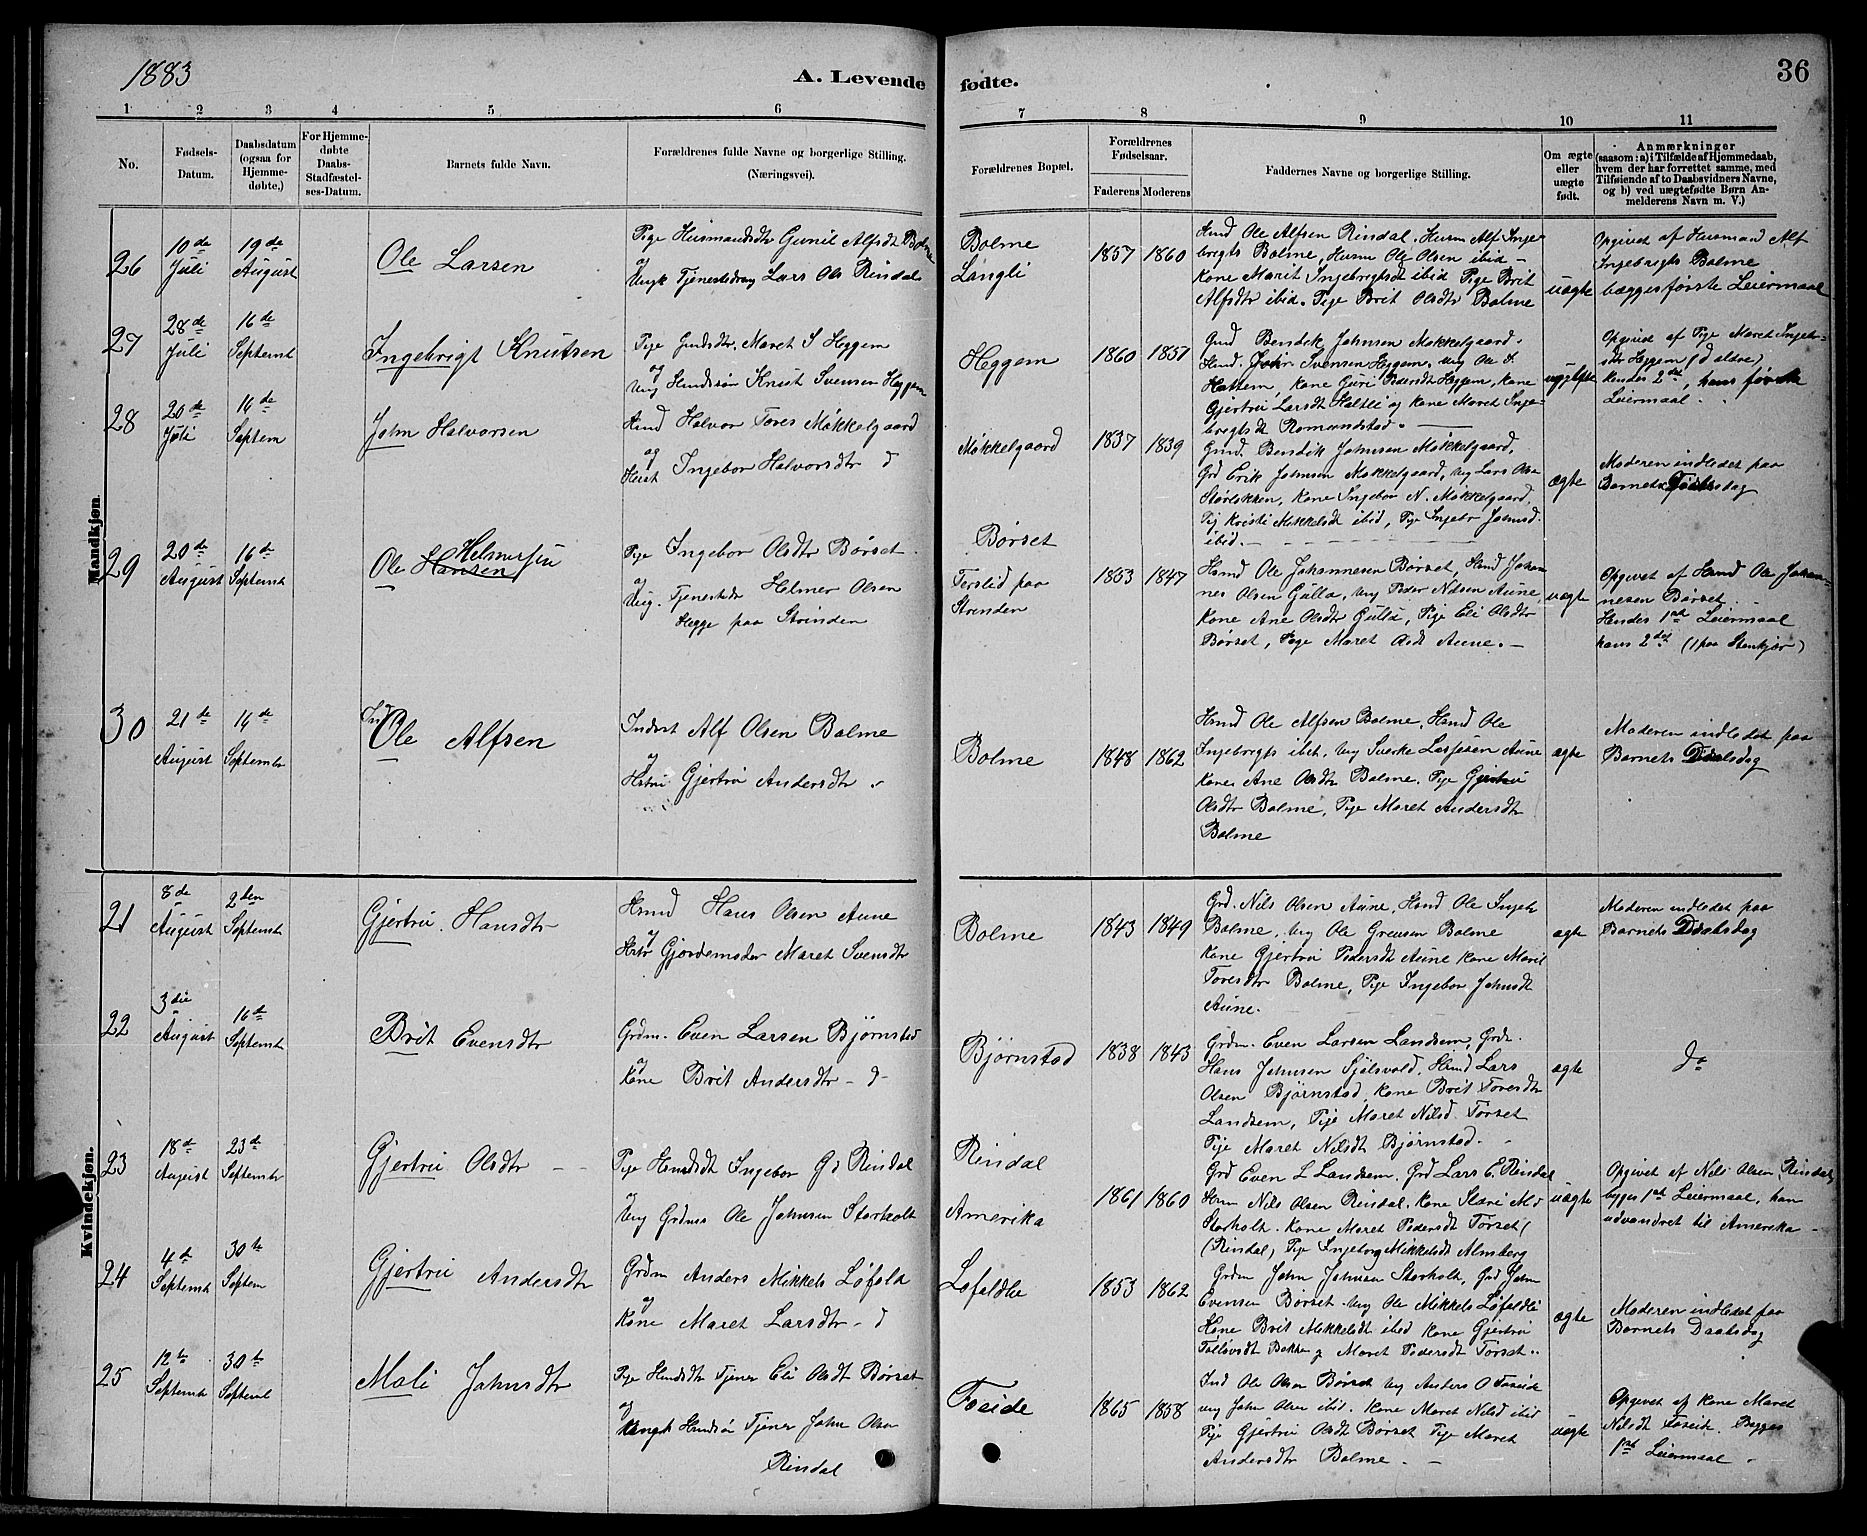 1883
A. Levende
fødte.
36
1 2 3 4 5 6
7 8 9 10 11
No.
Fødsels-
Datum.
Daabsdatum
(ogsaa for
Hjemme-
døbte.)
For Hjemme-
døbte
Daabs-
Stadfæstel-
ses-Datum.
Barnets fulde Navn.
Forældrenes fulde Navne og borgerlige Stilling.
(Næringsvei).
Forældrenes Bopæl.
Forældrenes
Fødselsaar.
Faderens Moderens
Faddernes Navne og borgerlige Stilling.
Om ægte
eller
uægte
født.
Anmærkninger
(saasom: a) i Tilfælde af Hjemmedaab,
hvem der har forrettet samme, med
Tilføiende af to Daabsvidners Navne,
og b) ved uægtefødte Børn An-
melderens Navn m. V.)
Mandkjøn.
26
10de
Juli
19de
August
Ole Larsen
Pige Husmandsdtr Gunil Alfsdt Bolme
og
Ungk Tjenestedreng Lars Ols Rindal
Bolme
Langli
1857 1860
Hmd Ole Alfsen Rindal, Husm Alf Inge-
brigts Bolme, Husm Ole Olsen ibid -
Kone Marit Ingebrigtsdt ibid Pige Brit
Alfsdtr ibid. Pige Brit Olsdtr Bolme
uægte
Opgivet af Husmand Alf
Ingebrigts Bolme
begges første Leiermaal
27
28de
Juli
16de
September
Ingebrigt Knutsen
Pige Gmdsdtr. Maret I Heggem
og
Ung Hmdssøn Knut Svensen Heggem
Heggem
1860 1851
Gmd Bendik Johnsen Møkkelgaard.
Hmd. John Svensen Heggem, Ung Ole I
Hattem, Kone Guri Pedersdt Heggem, Kone
Gjertru Larsdt Holtli og Kone Maret Inge-
brigtsdt Romundstad. -
Opgivet af Pige Maret Ingebr-
sdtr Heggem (d ældre)
Hendes 2det, hans første
Leiermaal.
28
20de
Juli
16de
Septem
John Halvorsen
Hmd Halvor Tores Møkkelgaard
og
Hust Ingebor Halvorsdtr d
Møkkelgaard
1837 1839
Gmd. Bendik Johnsen Møkkelgaard,
Grd Erik Johnsen Møkkelgaard, Ung Lars Ols
Størløkken, Kone Ingebor N. Møkkelgaard,
Pig Kristi Mikkelsdt ibid, Pige Ingebr Johnsd.
ibid. -
ægte
Moderen indledet paa
Barnets Daabsdag
29
20de
August
16de
September
Helmersen
Ole Hansen
Pige Ingebor Olsdtr Børset.
og
Ung. Tjenestedr Helmer Olsen
Hegge paa Strinden
Børset
Forslid paa
Strinden
1853 1847
Hsmd Ole Johannesen Børset, Hsmd Johan-
nes Olsen Gulla, Ung Peder Nilsen Aune,
Kone Ane Olsdtr Gulla, Pige Eli Olsdtr
Børset, Pige Maret Olsdt Aune. -
uægte
Opgivet af Hsmd Ole Johan-
nesen Børset.
Hendes 1ste Leiermaal
hans 2det (1 paa Stenkjær)
30
21de
August
16de
September
Ole Alfsen
Inderst Alf Olsen Bolme
og
Hstru Gjertru Andersdtr
Bolme
1848 1862
Hsmd Ole Alfsen Bolme, Hsmd Ole
Ingebrigts ibd. Ung Sverke Larsesen Aune
Kone Ane Olsdtr Bolme. Pige Gjertru
Olsdtr Bolme, Pige Maret Andersdtr
Bolme
ægte
Moderen indledet paa
Barnets Daabsdag
Kvindekjøn.
21
8de
August
2den
September
Gjertru. Hansdtr
Hsmd Hans Olsen Aune
og
Hstr Gjordemoder Maret Svensdtr
Bolme
1843 1849
Grd. Nils Olsen Aune, Hsmd Ole Ingebr
Bolme, Ung Ole Greusen Bolme
Kone Gjertru Pedersdt Aune Kone Marit
Toresdtr Bolme, Pige Ingebor Johnsdt
Aune.
ægte
Moderen indledet paa
Barnets Daabsdag
22
3die
August
16de
September
Brit Evensdtr
Grdm. Even Larsen Bjørnstad
og
Kone Brit Andersdtr - d -
Bjørnstad
1838 1843
Grdm. Even Larsen Landsem, Grdm.
Hans Johnsen Sjølsvold, Hsmd Lars
Olsen Bjørnstad, Kone Brit Toresdtr
Landsem, Pige Maret Nilsd Torset
Pige Maret Nilsdt Bjørnstad.
ægte
do
23
18de
August
23de
September
Gjertru Olsdtr - -
Pige Hsmdsdt Ingebor Gd Rindal
og
Ung Grdms Ole Johnsen Storholt
Rindal
Amerika
1861 1860
Grd Even L Landsem, Grd Lars E. Rindal
Hsm Nils Olsen Rindal, Kone Mari Md
Storholt. Kone Maret Pedersdt Torset (
(Rindal, Pige Ingeborg Mikkelsdt Almberg
uægte
Opgivet af Nils Olsen Rindal,
begges 1ste Leiermaal, han
udvandret til Amerika -
24
4de
September
30te
Septem
Gjertru Andersdtr
Grdm Anders Mikkels Løfald
og
Kone Maret Larsdtr - d
Løfaldli
1853 1862
Grdm John Johnsen Storholt, Grd John
Evensen Børset. Ung Ole Mikkels Løfaldli
Kone Brit Mikkelsdt ibid Kone Gjertru
Tollevsdt Bakke og Maret Pedersdt Torset.
ægte
Moderen indledet paa
Barnets Daabsdag
25
12te
September
30te
September
Mali Johnsdtr
Pige Hmdsdtr Tjener Eli Olsdt Børset
og
Ungk Hmdssøn Tjener John Olsen
Rindal
Foseide
1865 1858
Ind Ole Olsen Børset Ung Anders O Foseide
ung John Olsen ibid. Kone Maret Nilsd ibid
Pige Gjertru Olsdt Børset Pige Maret
Andersdtr Bolme. -
uægte
Opgivet af Kone Maret
Nilsdt Foseide. Begges
1ste Leiermaal -